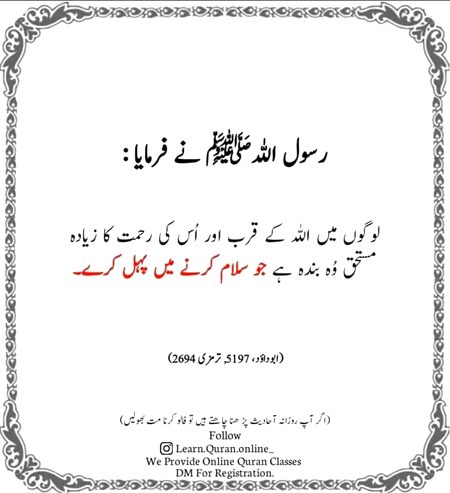 رسول اللہ ﷺ نے فرمایا :
لوگوں میں اللہ کے قرب اور اُس کی رحمت کا زیادہ
مستحق وُہ بندہ ہے جو سلام کرنے میں پہل کرے۔
(ابوداؤد، 5197، ترمزی 2694)
(اگر آپ روزانہ آحادیث پڑھنا چاھتے ہیں تو فالو کرنا مت بھولیں)
Follow
Learn.Quran.online_
We Provide Online Quran Classes
DM For Registration.